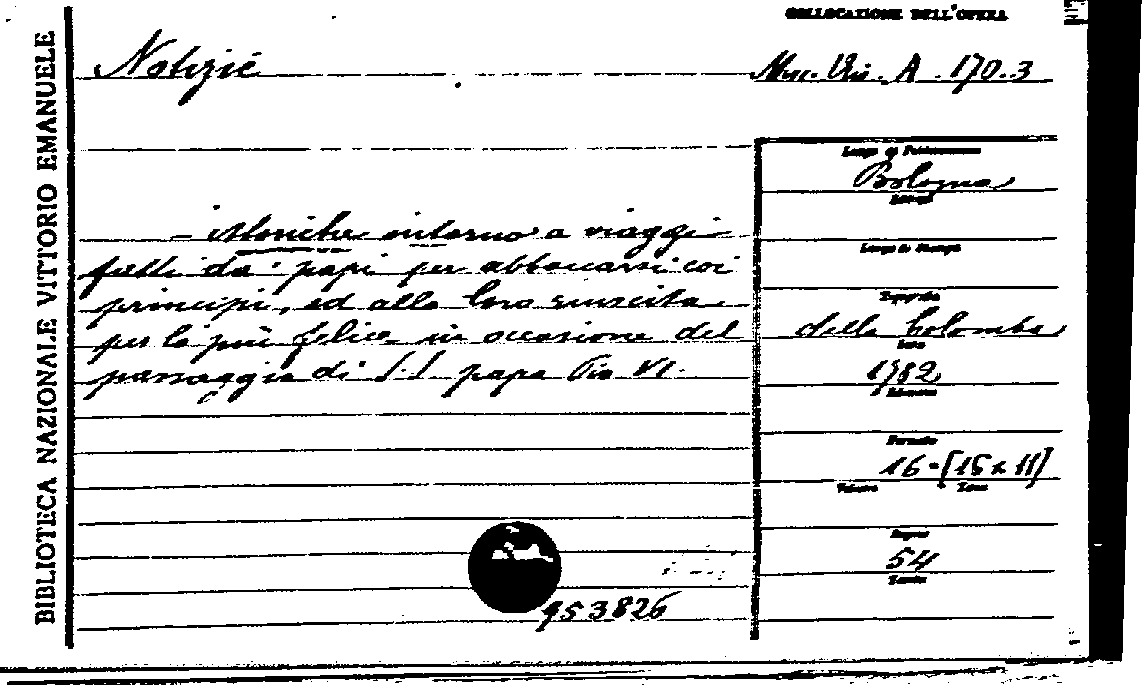 BIBLIOTECA NAZIONALE VITTORIO EMANUELE
COLLOCAZIONE DELL'OPERA
Notizie
A. 170.3
- storiche intorno a viaggi
fatti da' papi per abboccarsi coi
principi, ed alla loro riuscita
per lo più felice in occasione del
passaggio di S.S. papa Pio VI.
953826
Bologna
Luogo di Stampa
Tipografia
della Colomba
Data
1782
Formato
16-[15 x 11]
Volume
Tomo
Pagine
54